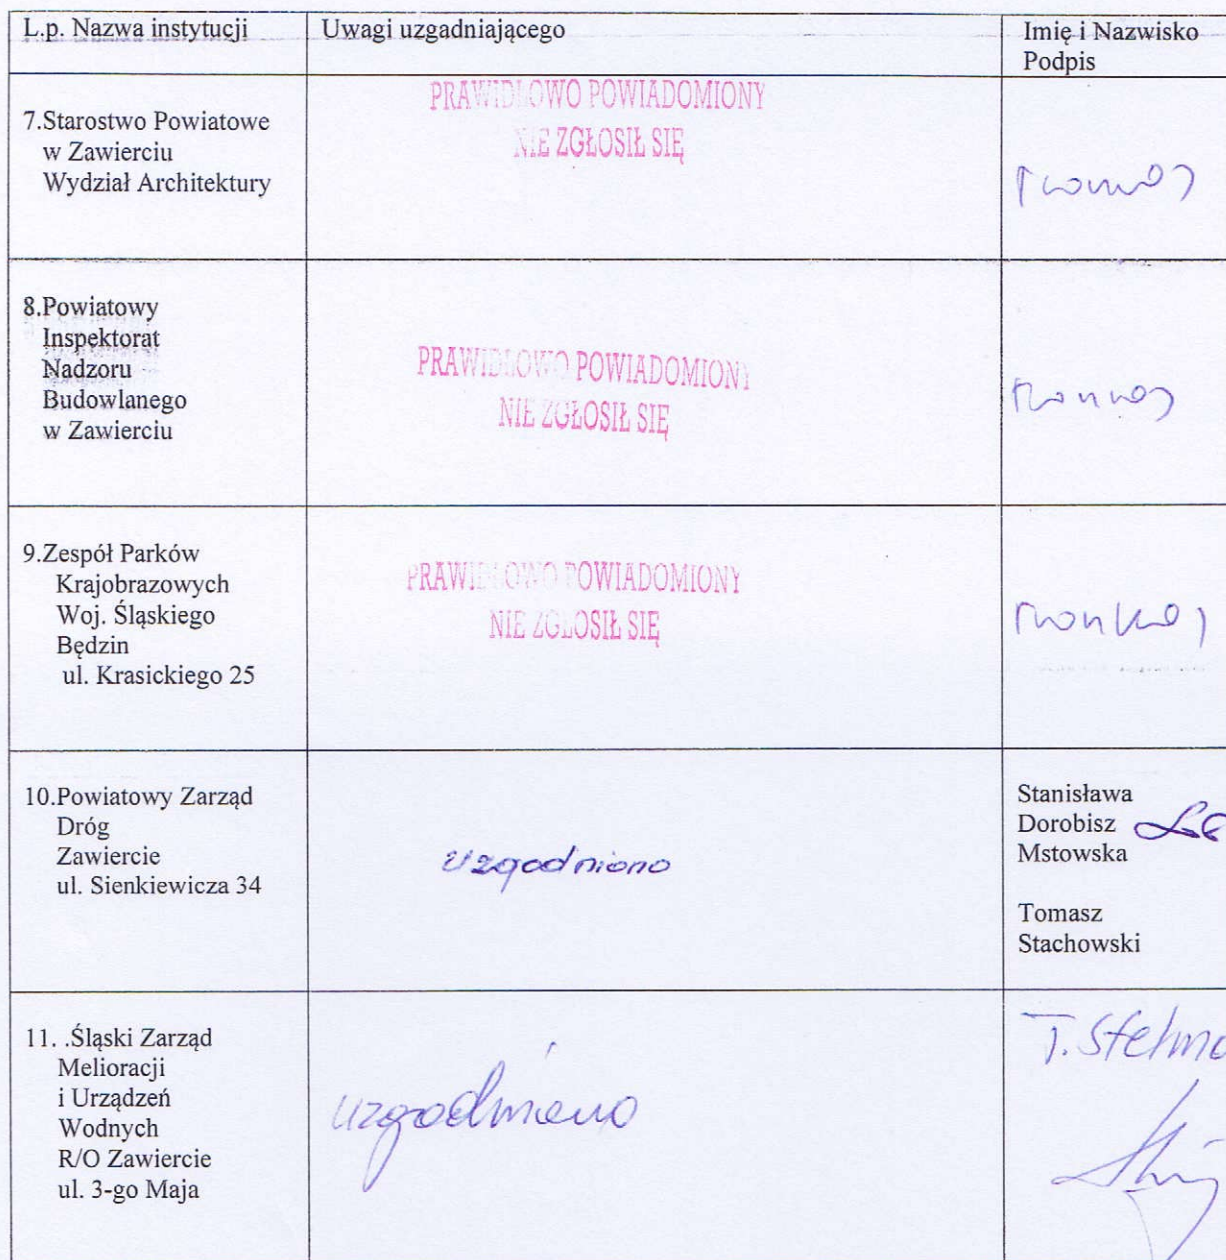 L.p. Nazwa instytucji
Uwagi uzgadniającego
Imię i Nazwisko
Podpis
7.Starostwo Powiatowe
w Zawierciu
Wydział Architektury
PRAWIDŁOWO POWIADOMIONY
NIE ZGŁOSIŁ SIĘ
8.Powiatowy
Inspektorat
Nadzoru
Budowlanego
w Zawierciu
PRAWIDŁOWO POWIADOMIONY
NIE ZGŁOSIŁ SIĘ
9.Zespół Parków
Krajobrazowych
Woj. Śląskiego
Będzin
ul. Krasickiego 25
PRAWIDŁOWO POWIADOMIONY
NIE ZGŁOSIŁ SIĘ
10.Powiatowy Zarząd
Dróg
Zawiercie
ul. Sienkiewicza 34
uzgodniono
Stanisława
Dorobisz
Mstowska
Tomasz
Stachowski
11. .Śląski Zarząd
Melioracji
i Urządzeń
Wodnych
R/O Zawiercie
ul. 3-go Maja
uzgodniono
T. Stelma